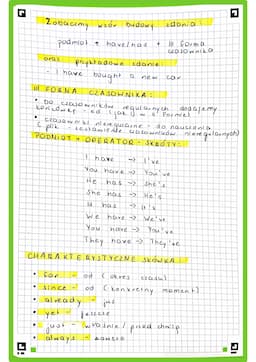 Zobaczmy wzór budowy zdania:
podmiot + have/has + III forma
czasownika
oraz przykładowe zdanie:
- I have bought a new car
III FORMA CZASOWNIKA:
• Do czasowników regularnych dodajemy
końcówkę - ed (jak w II formie)
• czasowniki nieregularne - do nauczenia
(plik - zestawienie czasowników nieregularnych)
PODMIOT + OPERATOR - SKRÓTY:
I have → I've
You have → You've
He has → He's
She has → She's
It has → It's
We have → We've
You have → You've
They have → They've
CHARAKTERYSTYCZNE SŁÓWKA:
• for - od (okres czasu)
• since - od (konkretny moment)
• already - już
• yet - jeszcze
• just - właśnie / przed chwilą
• always - zawsze